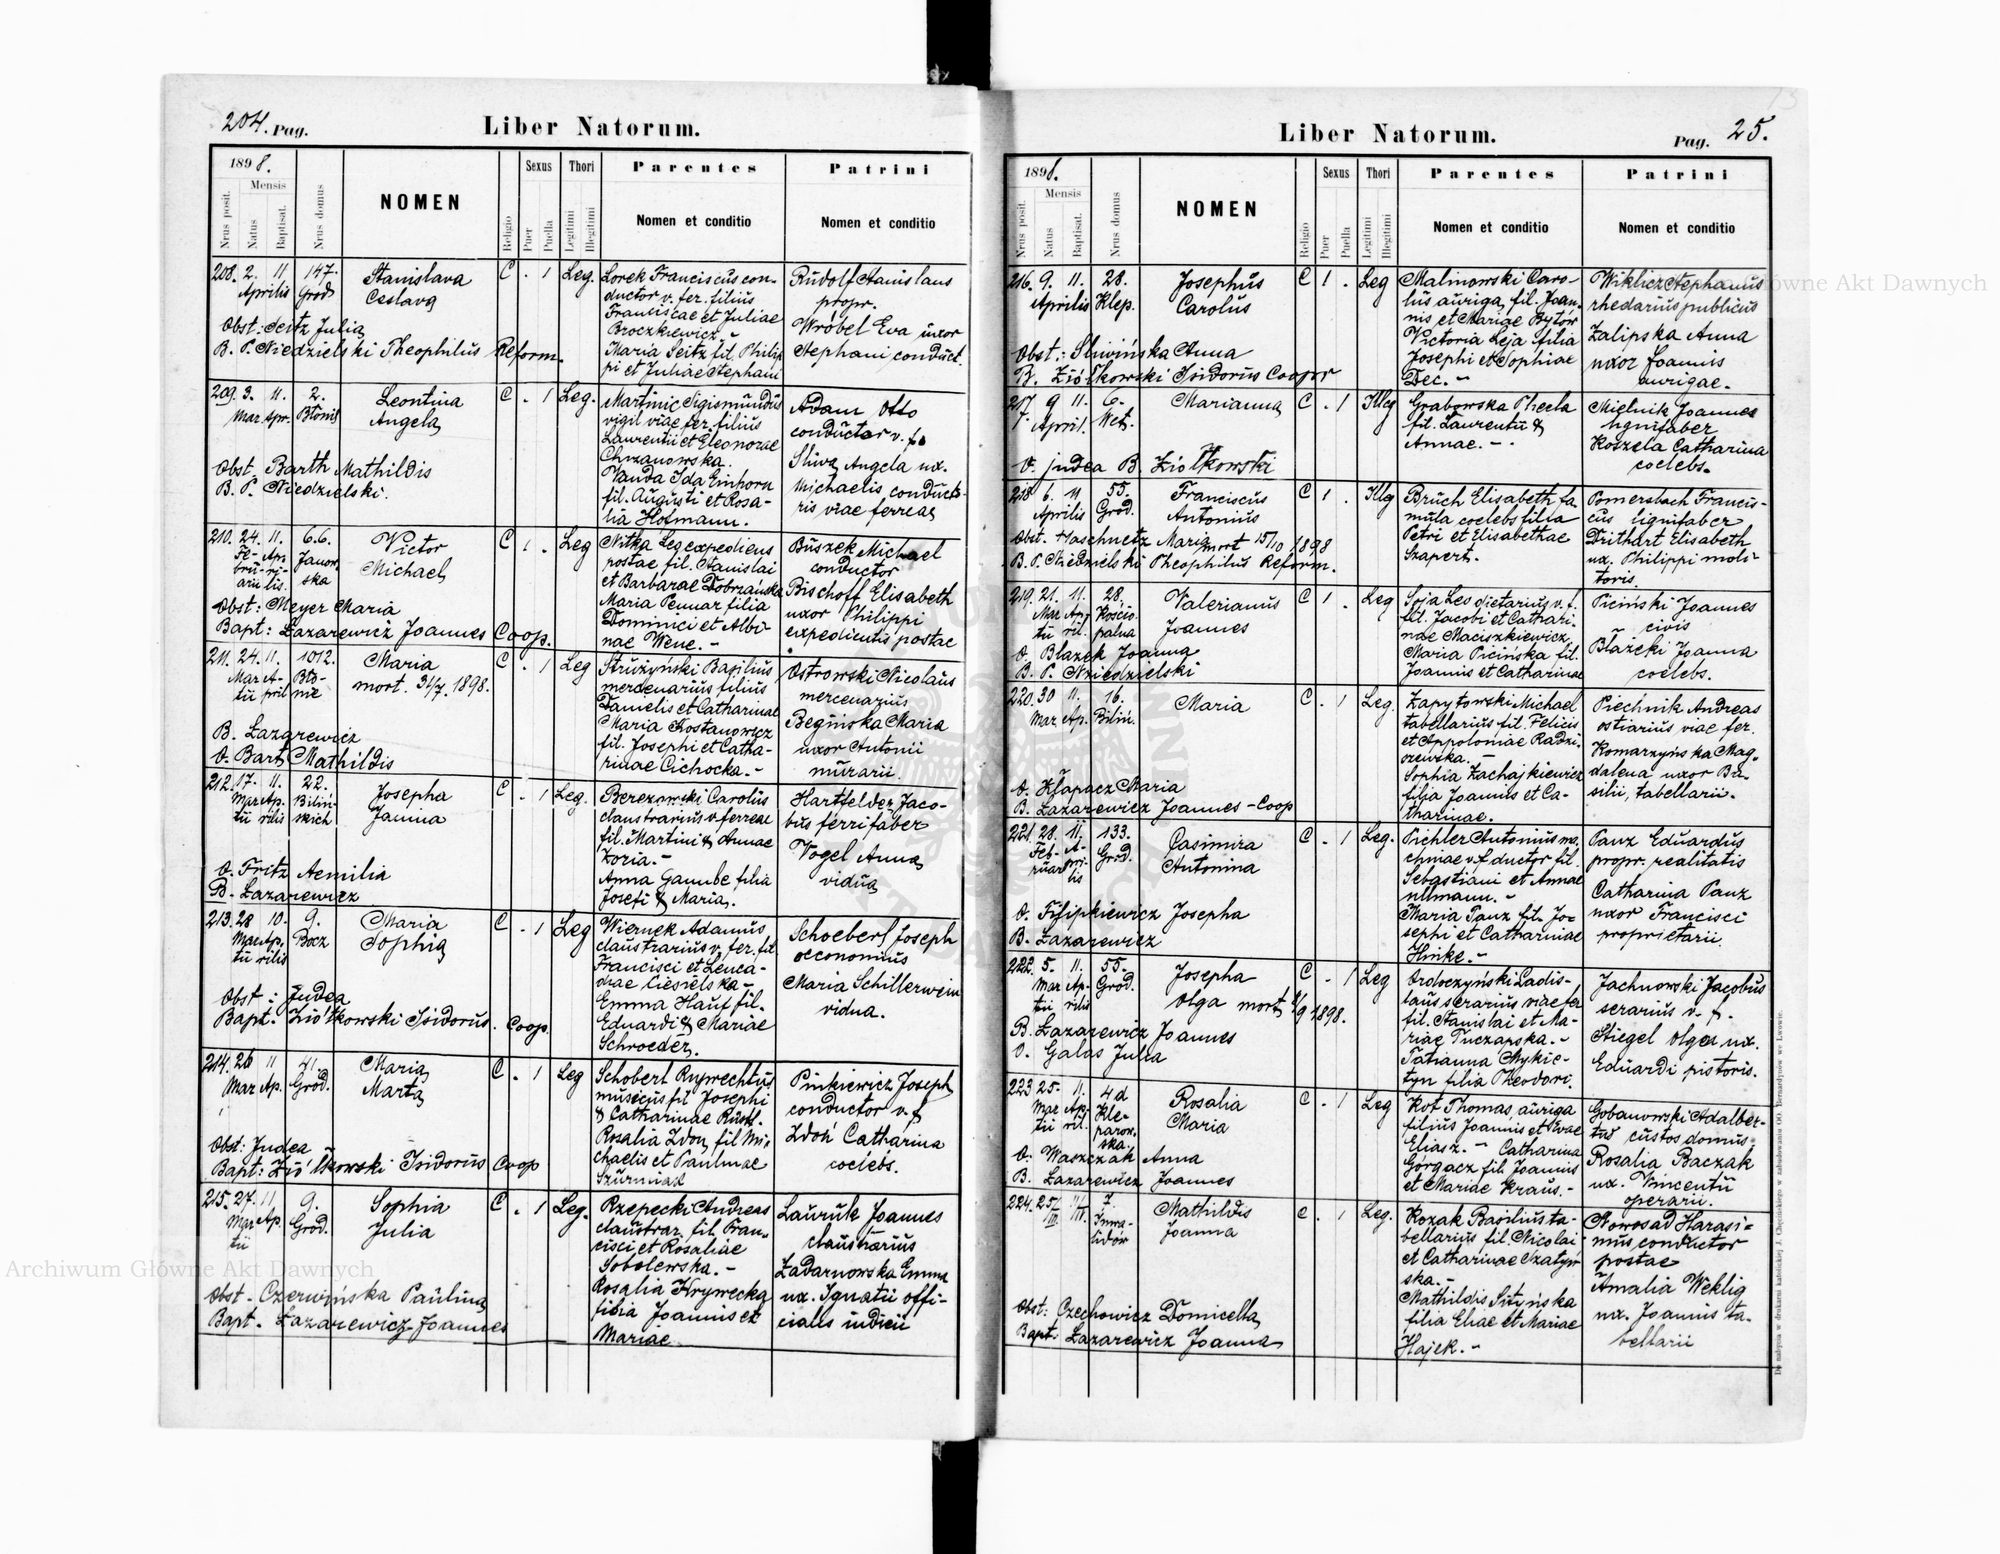 204. Pag.
Liber Natorum.
1898.
Mensis
Nrus posit.
Natus
Baptisat.
Nrus domus
NOMEN
Religio
Sexus
Puer
Puella
Thori
Legitimi
Illegitimi
Parentes
Nomen et conditio
Patrini
Nomen et conditio
208. 2. 11 147. Stanislava C . 1 Leg.
Aprilis Grod Ceslava
Obst: Seitz Julia
B. P. Niedzielski Theophilus Reform.
Lorek Franciscus con-
ductor v. fer. filius
Franciscae et Juliae
Broczkiewicz -
Maria Seitz fil. Philip
pi et Juliae Stephani
Rudolf Stanislaus
propr.
Wróbel Eva uxor
Stephani conduct.
209. 3. 11. 2. Leontina C . 1 Leg.
Mar. Apr. Błonie Angela
Obst. Barth Mathildis
B. P. Niedzielski.
Martinic Sigismundus
vigil viae fer. filius
Laurentii et Eleonorae
Chrzanowska.
Vanda Ida Einhorn
fil. Augusti et Rosa-
lia Hofmann.
Adam Otto
conductor v. f.
Sliwa Angela ux.
Michaelis conducto-
ris viae ferreae
210. 24. 11. 66. Victor C 1 . Leg
Fe- Ap. Janow- Michael
bru- ri- ska
arii lis.
Obst: Meyer Maria
Bapt: Lazarewicz Joannes Coop.
Nitka Leg expediens
postae fil. Stanislai
et Barbarae Dobrzańska
Maria Pennar filia
Dominici et Albi-
nae Wene. -
Buszek Michael
conductor
Bischoff Elisabeth
uxor Philippi
expedientis postae
211. 24. 11. 1012. Maria C . 1 Leg
Mar A- Bło- mort. 31/7. 1898.
tii pril nie
B. Lazarewicz
O. Bart Mathildis
Strużyński Basilius
mercenarius filius
Danielis et Catharinae
Maria Kostanowicz
fil. Josephi et Catha-
rinae Cichocka. -
Ostrowski Nicolaus
mercenarius
Begińska Maria
uxor Antonii
murarii.
212. 17. 11. 22. Josepha C . 1 Leg.
Mar Ap. Bilin- Janina
tii rilis skich
O. Fritz Aemilia
B. Lazarewicz
Berezowski Carolus
claustrarius v. ferreae
fil. Martini & Annae
Zoria. -
Anna Gambe filia
Josefi & Maria.
Hartfelder Jaco-
bus ferrifaber
Vogel Anna
vidua
213. 28 10. 9. Maria C . 1 Leg
Mar Ap. Bocz Sophia
tii rilis
Obst: Judea
Bapt. Ziółkowski Isidorus. Coop.
Wiernek Adamus
claustrarius v. fer. fil.
Francisci et Leuca-
diae Ciesielska -
Emma Hauf fil.
Eduardi & Mariae
Schroeder.
Schoeberl Joseph
oeconomius
Maria Schillerwein
vidua.
214. 26 11 41. Maria C . 1 Leg
Mar Ap. Grod. Marta
Obst: Judea
Bapt: Ziółkowski Isidorus Coop
Schobert Ruprechtus
musicus fil Josephi
& Catharinae
Rosalia Zdoń fil Mi-
chaelis et Paulinae
Szurmiak
Pinkiewicz Joseph
conductor v. f
Zdoń Catharina
coelebs.
215. 27. 11 9. Sophia C . 1 Leg.
Mar Ap. Grod. Julia
tii
Obst - Czerwińska Paulina
Bapt. Lazarewicz Joannes
Rzepecki Andreas
claustrar. fil. Fran-
cisci et Rosaliae
Sobolewska. -
Rosalia Hrywecka
filia Joannis et
Mariae
Lauruk Joannes
claustrarius
Zadarnowska Emma
ux. Ignatii offi-
cialis iudicii
Liber Natorum.
Pag. 25.
1898.
Mensis
Nrus posit.
Natus
Baptisat.
Nrus domus
NOMEN
Religio
Sexus
Puer
Puella
Thori
Legitimi
Illegitimi
Parentes
Nomen et conditio
Patrini
Nomen et conditio
216. 9. 11. 28. Josephus C 1 . Leg
Aprilis Klep. Carolus
Obst.: Sliwińska Anna
B. Ziółkowski Isidorus Coopr
Malinowski Caro-
lus auriga fil. Joan-
nis et Mariae Bytów
Victoria Leja filia
Josephi et Sophiae
Dec. -
Wiklicz Stephanus
rhedarius publicus
Zalipska Anna
uxor Joannis
aurigae.
217 9 11. 6. Marianna C . 1 Illeg
April. Wet.
O. judea B. Ziółkowski
Grabowska Thecla
fil. Laurentii &
Annae. - .
Mielnik Joannes
lignifaber
Koszela Catharina
coelebs.
218 6. 11 55. Franciscus C 1 . Illg
Aprilis Grod. Antonius
Obst. Haschnetz Maria mort 15/10 1898
B. P. Niedzielski Theophilus Reform.
Bruch Elisabeth fa-
mula coelebs filia
Petri et Elisabethae
Szapert.
Pomersbach Francis-
cus lignifaber
Drithart Elisabeth
ux. Philippi moli-
toris.
219. 21. 11. 28. Valerianus C 1 . Leg
Mar Ap- Kościo- Joannes
tii ril. palna
O. Blazek Joanna
B. P. Niedzielski
Soja Leo dietarius v. f.
fil. Jacobi et Cathari-
nae Maciszkiewicz
Maria Picińska fil.
Joannis et Catharinae
Piciński Joannes
civis
Błażecki Joanna
coelebs.
220. 30 11. 16. Maria C . 1 Leg.
Mar Ap. Bilin.
O. Kłapacz Maria
B. Lazarewicz Joannes - Coop
Zapytowski Michael
tabellarius fil. Felicis
et Appoloniae Radzi-
szewska. -
Sophia Zachajkiewicz
filia Joannis et Ca-
tharinae.
Piechnik Andreas
ostiarius viae fer.
Komarzyńska Mag-
dalena uxor Ba-
silii, tabellarii.
221. 28. 11. 133. Casimira C . 1 Leg.
Feb- A- Grod. Antonina
ruar pri-
lis
O. Filipkiewicz Josepha
B. Lazarewicz
Pichler Antonius ma-
chinae v. f. ductor fil.
Sebastiani et Annae
Ullmann. -
Maria Panz fil. Jo-
sephi et Catharinae
Hinke. -
Panz Eduardus
propr. realitatis
Catharina Panz
uxor Francisci
proprietarii.
222. 5. 11. 55. Josepha C . 1 Leg
Mar Ap- Grod. Olga mort 4/9 1898.
tii rilis
B. Lazarewicz Joannes
O. Galas Julia
Ordoczyński Ladis-
laus serarius viae fer.
fil. Stanislai et Ma-
riae Tuczapska. -
Tatianna Mykie-
tyn filia Theodori.
Jachnowski Jacobus
serarius v. f.
Stiegel Olga ux.
Eduardi pistoris.
223 25. 11. 4d Rosalia C . 1 Leg
Mar Ap- Kle- Maria
tii ril. parow-
ska
O. Waszczak Anna
B. Lazarewicz Joannes
Kot Thomas auriga
filius Joannis et Evae
Eliasz. - Catharina
Górgacz fil. Joannis
et Mariae Kraus. -
Gobanowski Adalber-
tus custos domus
Rosalia Baczak
ux. Vincentii
operarii.
224. 25/III. 11/IV. 7 Mathildis C . 1 Leg.
Inwa- Joanna
lidów
Obst: Czechowicz Domicella
Bapt: Lazarewicz Joanna
Kozak Basilius ta-
bellarius fil. Nicolai
et Catharinae Czatyn
ska. -
Mathildis Sitińska
filia Eliae et Mariae
Hajek. -
Nowosad Harasi-
mus conductor
postae
Amalia Weklig
ux. Joannis ta-
bellarii
Do nabycia w drukarni katolickiej J. Chęcińskiego w zabudowaniu OO. Bernardynów we Lwowie.
Archiwum Główne Akt Dawnych